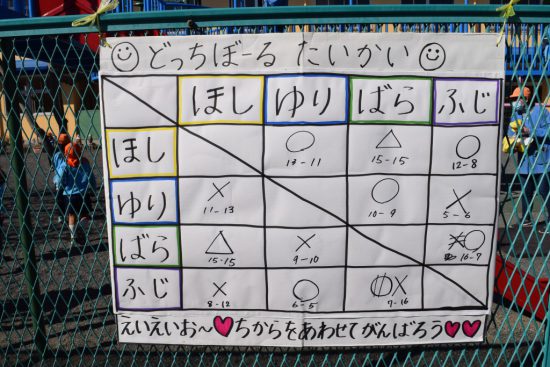 どっちぼーる たいかい
ほし ゆり ばら ふじ
ほし ○ △ ○
13-11 15-15 12-8
ゆり × ○ ×
11-13 10-9 5-6
ばら △ × ○
15-15 9-10 10-7
ふじ × ○ ×
8-12 6-5 7-10
えいえいお〜♥ちからをあわせてがんばろう♥♥